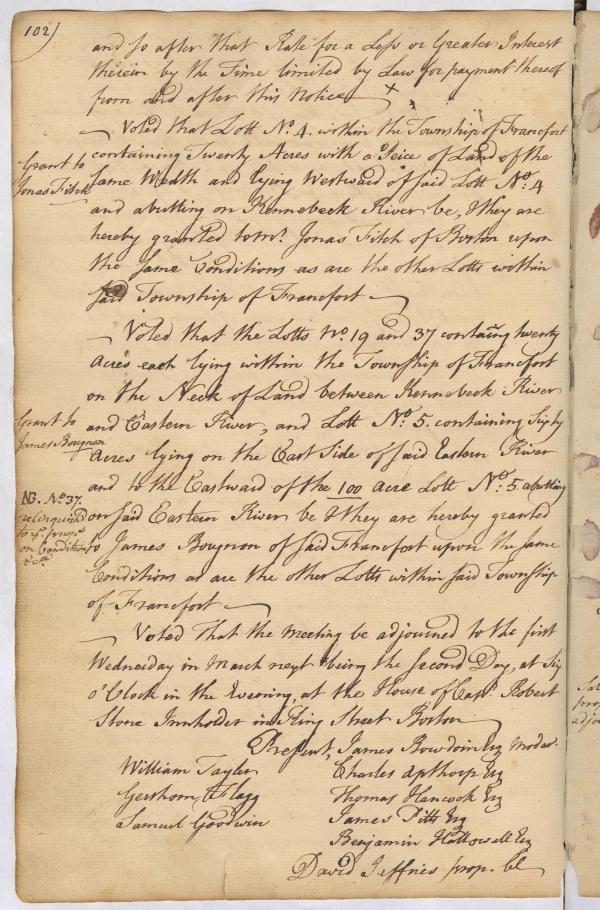 102)
and so after that Rate for a Less or Greater Interest
therein by the Time limited by Law for payment thereof
from and after this Notice
Voted that Lott No. 4. within the Township of Francfort
Grant to
Jonas Fitch
containing Twenty Acres with a Peice of Land of the
same Width and lying Westward of said Lott No. 4
and abutting on Kennebeck River be, & they are
hereby granted to mr. Jonas Fitch of Boston upon
the same Conditions as are the other Lotts within
said Township of Francfort
Voted that the Lotts No. 19 and 37 containg twenty
Acres each lying within the Township of Francfort
on the Neck of Land between Kennebeck River
Grant to
James Bougnon
and Eastern River, and Lott No. 5. containing Sixty
Acres lying on the East Side of said Eastern River
and to the Eastward of the 100 Acre Lott No. 5 abutting
NB. No. 37.
relinquishd
to ye. prop.
on Conditions
&ca
on said Eastern River be & they are hereby granted
to James Bougnon of said Francfort upon the same
Conditions as are the other Lotts within said Township
of Francfort
Voted that the meeting be adjourned to the first
Wednesday in March next being the Second Day, at Six
o'Clock in the Evening, at the House of Capt. Robert
Stone Innholder in King Street Boston
Present, James Bowdoin Esq moder.
William Tayler
Charles Apthorp Esq
Gershom Flagg
Thomas Hancock Esq
Samuel Goodwin
James Pitts Esq
Benjamin Hallowell Esq
David Jeffries prop. Cl